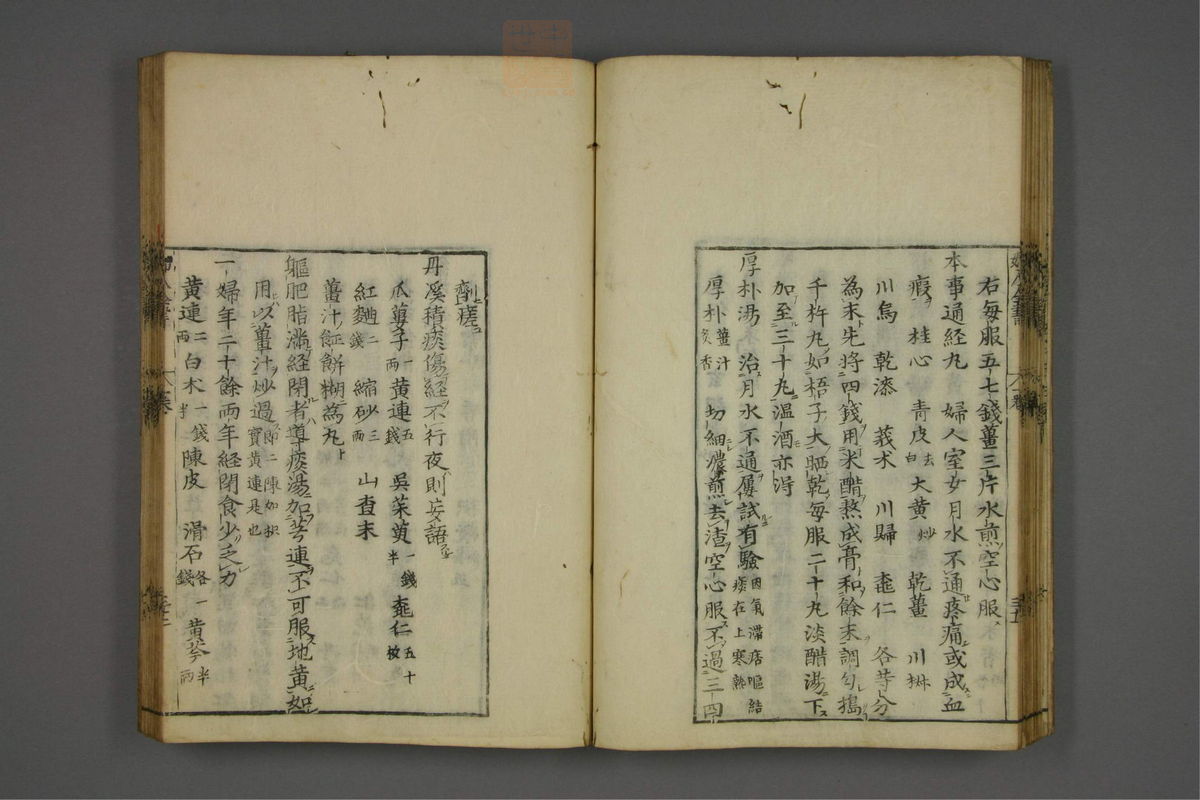 右毎服五七錢薑三片水煎空心服
本事通経丸　婦人室女月水不通疼痛或成血
瘕　桂心　青皮去白　大黄炒　乾薑　川椒
川烏　乾漆　莪朮　川歸　桃仁　各等分
為末先將四錢用米醋熬成膏和餘末調勻搗
千杵丸如梧子大晒乾毎服二十丸淡醋湯下
加至三十丸温酒亦得
厚朴湯　治月水不通屢試有驗因氣滯痞嘔結痰在上寒熱
厚朴薑汁炙香　切細濃煎去渣空心服不過三四
劑瘥
丹溪積痰傷経不行夜則妄語
瓜蔞子一兩　黄連五錢　吳茱萸一錢半　桃仁五十枚
紅麯二錢　縮砂三兩　山査末
薑汁餅糊為丸
軀肥脂滿経閉者導痰湯加芎連不可服地黄如
用以薑汁炒過實即二陳加枳黄連是也
一婦年二十餘兩年経閉食少乏力
黄連二兩　白朮一錢半　陳皮　滑石各一錢　黄芩半兩